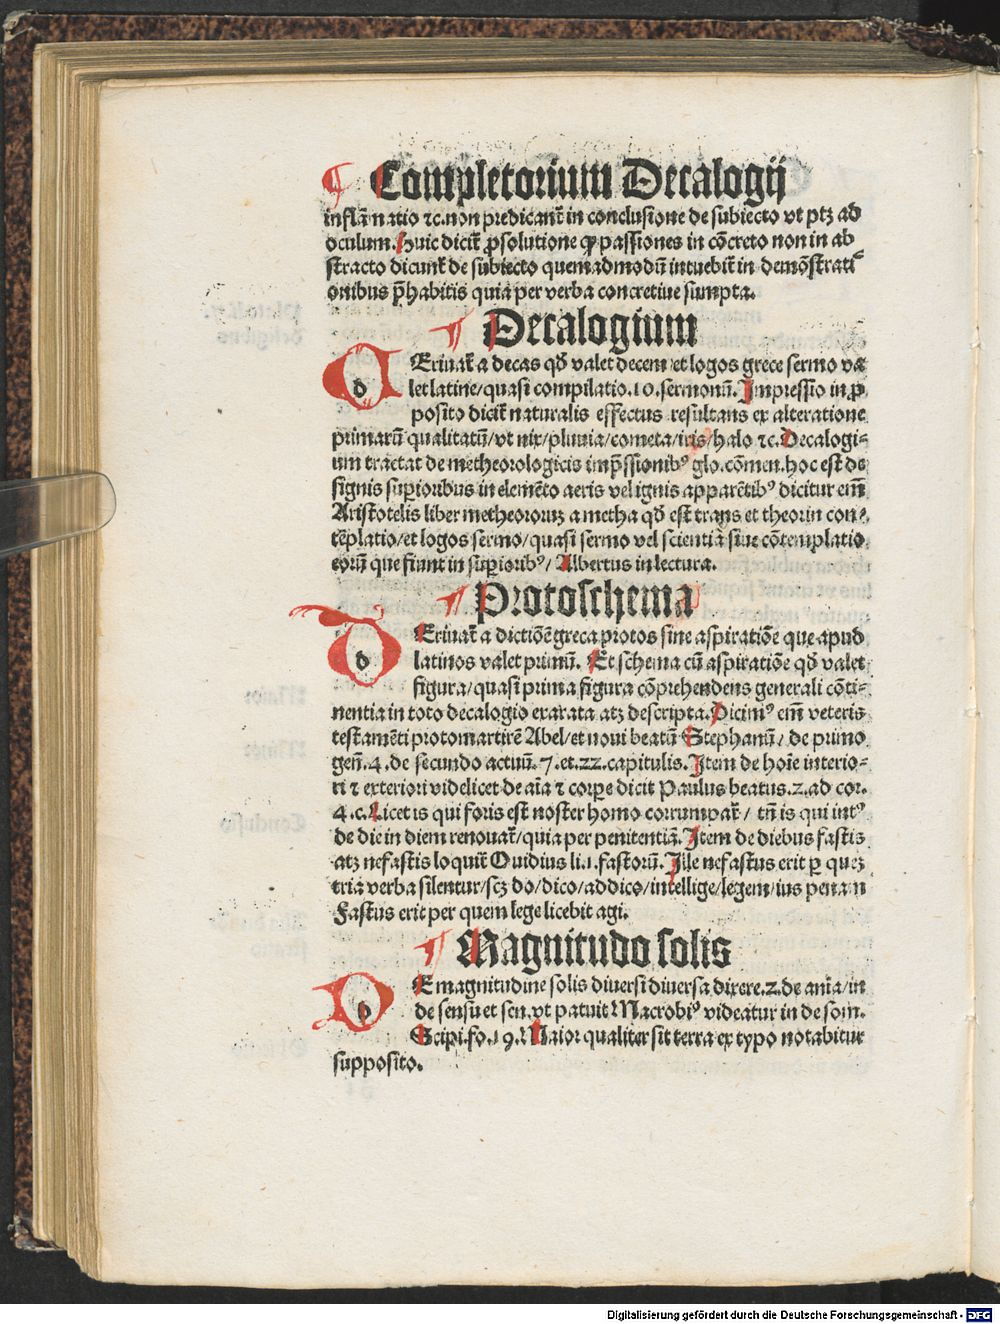 ¶ Completorium Decalogij
inflãnatio ⁊c. non predicant᷑ in conclusione de subiecto vt ptꝫ ad
oculum. Huic dicit᷑ ꝓ solutione ꝙ passiones in cõcreto non in ab
stracto dicunt᷑ de subiecto quemadmodũ intuebit᷑ in demõstrati⸗
onibus p̃habitis quia per verba concretiue sumpta.
¶ Decalogium
dEriuat᷑ a decas qđ valet decem et logos grece sermo va
let latine/quasi compilatio .10. sermonũ. Impressio in ꝓ
posito dicit᷑ naturalis effectus resultans ex alteratione
primarũ qualitatũ/vt nix/pluuia/cometa/iris/halo ⁊c. Decalogi⸗
um tractat de metheorologicis imp̃ssionibꝰ glo. cõmen. hoc est de
signis sup̲ioribus in elemẽto aeris vel ignis apparẽtibꝰ dicitur em̃
Aristotelis liber metheororuꝫ a metha qđ est trans et theorin con⸗
tẽplatio/et logos sermo/quasi sermo vel scientia siue cõtemplatio
eorũ que fiunt in sup̲ioribꝰ/ Albertus in lectura.
¶ Protoschema
dEriuat᷑ a dictiõe greca protos sine aspiratiõe que apud
latinos valet primũ. Et schema cũ aspiratiõe qđ valet
figura/quasi prima figura cõprehendens generali cõti⸗
nentia in toto decalogio exarata atꝫ descripta. Dicimꝰ em̃ veteris
testamẽti protomartirẽ Abel/et noui beatũ Stephanũ/ de primo
geñ. 4. de secundo actuũ. 7. et. 22. capitulis. Item de hoĩe interio⸗
ri ⁊ exteriori videlicet de aĩa ⁊ corpe dicit Paulus beatus .2. ad cor.
4. c. Licet is qui foris est noster homo corrumpat᷑/ tñ is qui intꝰ
de die in diem renouat᷑/quia per penitentiã. Item de diebus fastis
atꝫ nefastis loquit᷑ Ouidius li. 1. fastorũ. Ille nefastus erit p̲ queꝫ
tria verba silentur/scꝫ do/dico/addico/intellige/legem/ius penam
Fastus erit per quem lege licebit agi.
¶ Magnitudo solis
dE magnitudine solis diuersi diuersa dixere .2. de anĩa/in
de sensu et sen. vt patuit Macrobiꝰ videatur in de som.
Scipi. fo. 19. Maior qualiter sit terra ex typo notabitur
supposito.
Digitalisierung gefördert durch die Deutsche Forschungsgemeinschaft - DFG